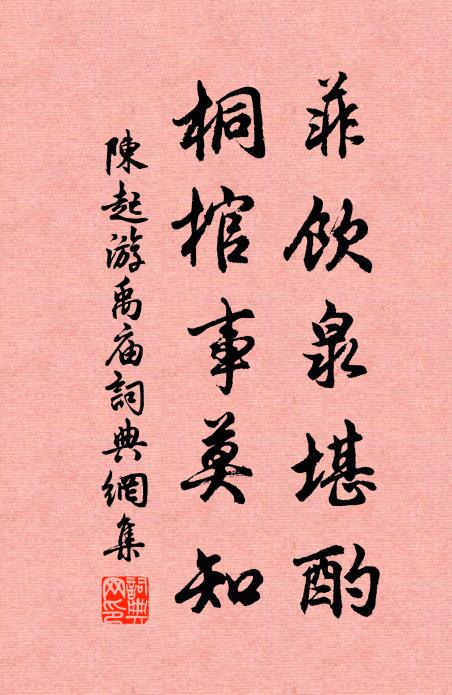 菲飲泉堪酌
桐棺事莫知
陳起游禹庙詞典網集
詞典網印